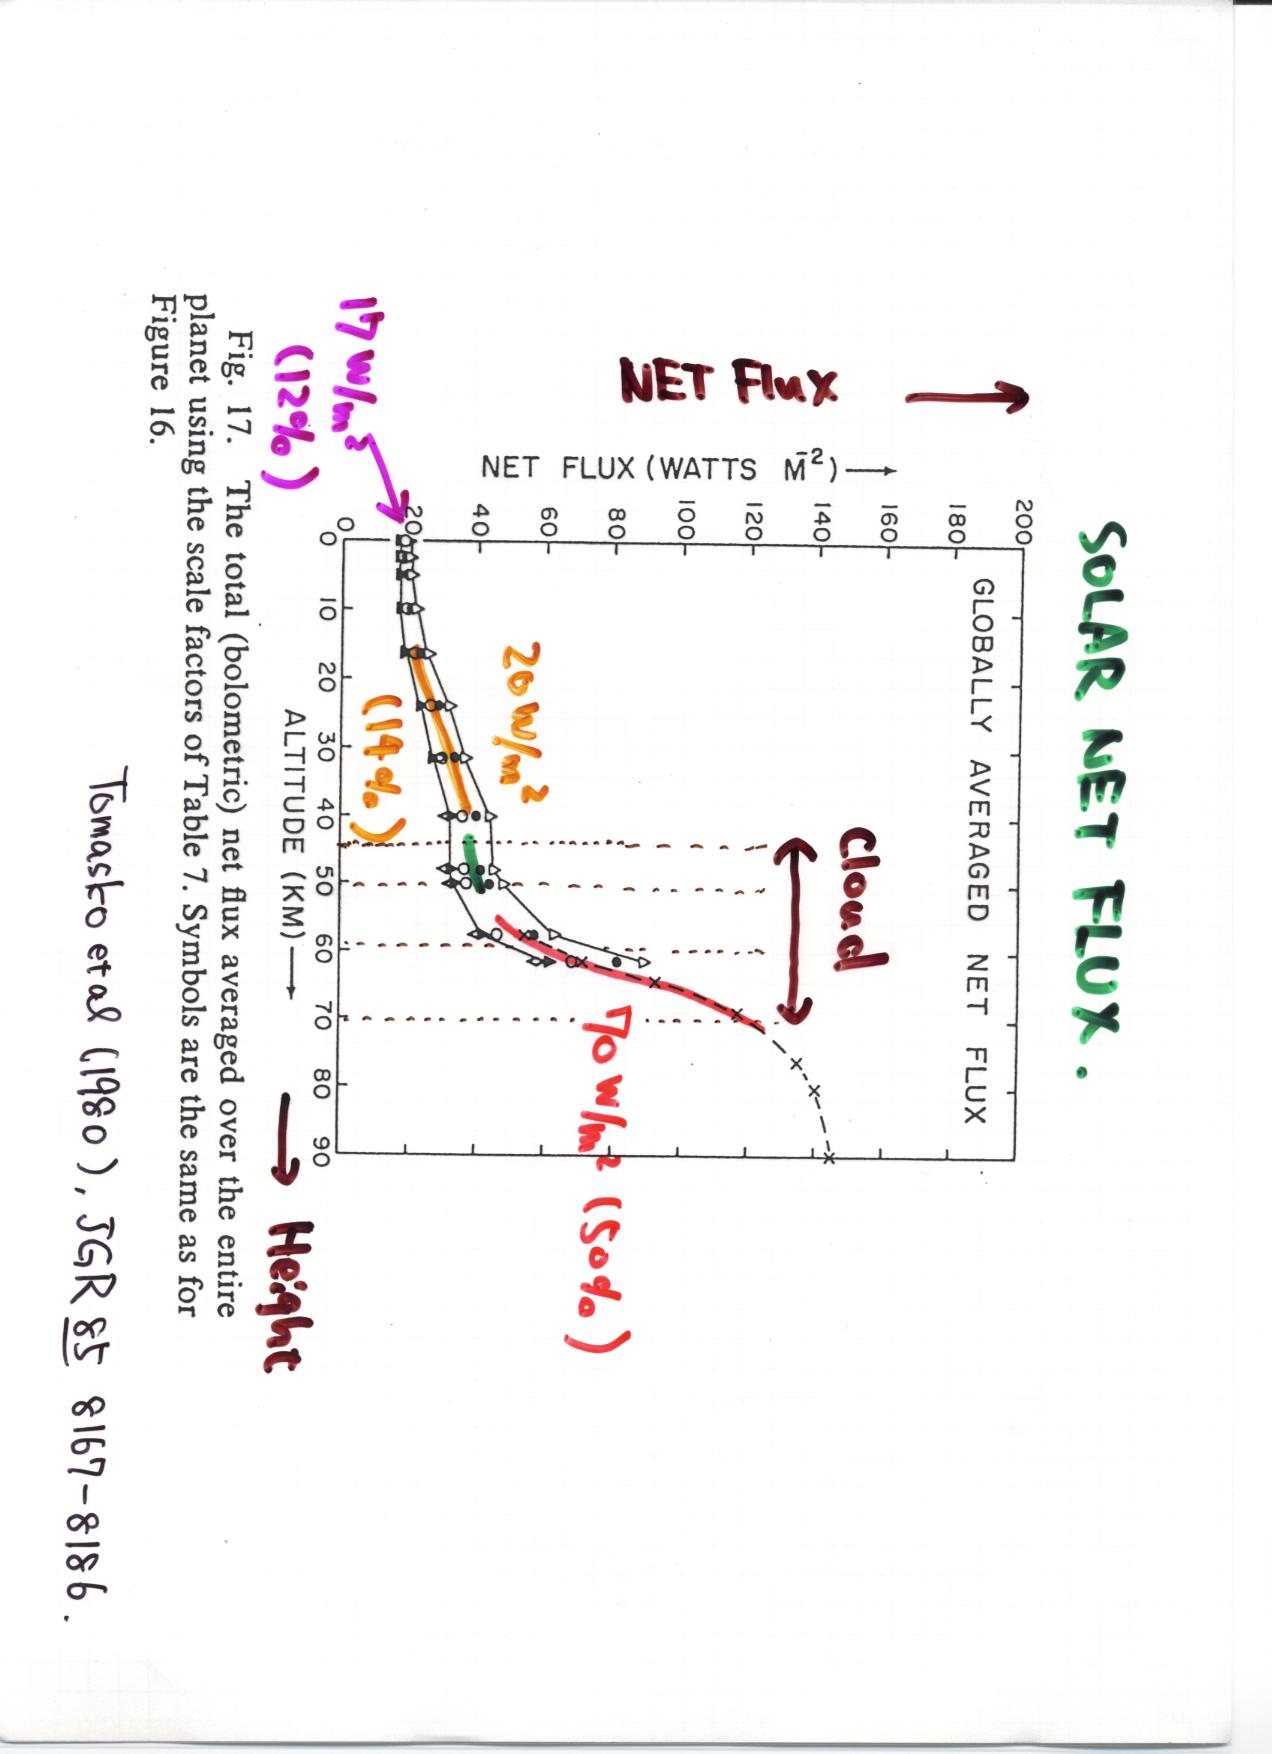 SOLAR NET FLUX.
NET Flux
NET FLUX (WATTS M̄²)
200
180
160
140
120
100
80
60
40
20
0
GLOBALLY AVERAGED NET FLUX
Cloud
20 W/m²
(14%)
70 W/m² (50%)
17 W/m²
(12%)
0 10 20 30 40 50 60 70 80 90
ALTITUDE (KM)
Height
Fig. 17. The total (bolometric) net flux averaged over the entire
planet using the scale factors of Table 7. Symbols are the same as for
Figure 16.
Tomasko et al (1980), JGR 85 8167-8186.